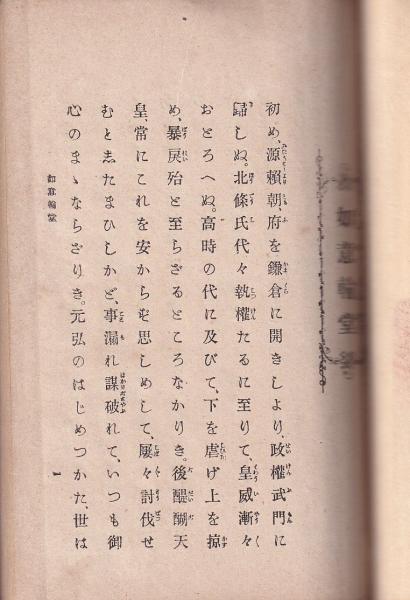 如意輪堂
初め、源賴朝、府を鎌倉に開きしより、政權武門に
歸しぬ。北條氏代々執權たるに至りて、皇威漸々
おとろへぬ。高時の代に及びて、下を虐げ上を掠
め、暴戾殆と至らざるところなかりき。後醍醐天
皇、常にこれを安からず思しめして、屢々討伐せ
むと志たまひしかど、事漏れ謀破れて、いつも御
心のまゝならざりき。元弘のはじめつかた、世は
如意輪堂
一